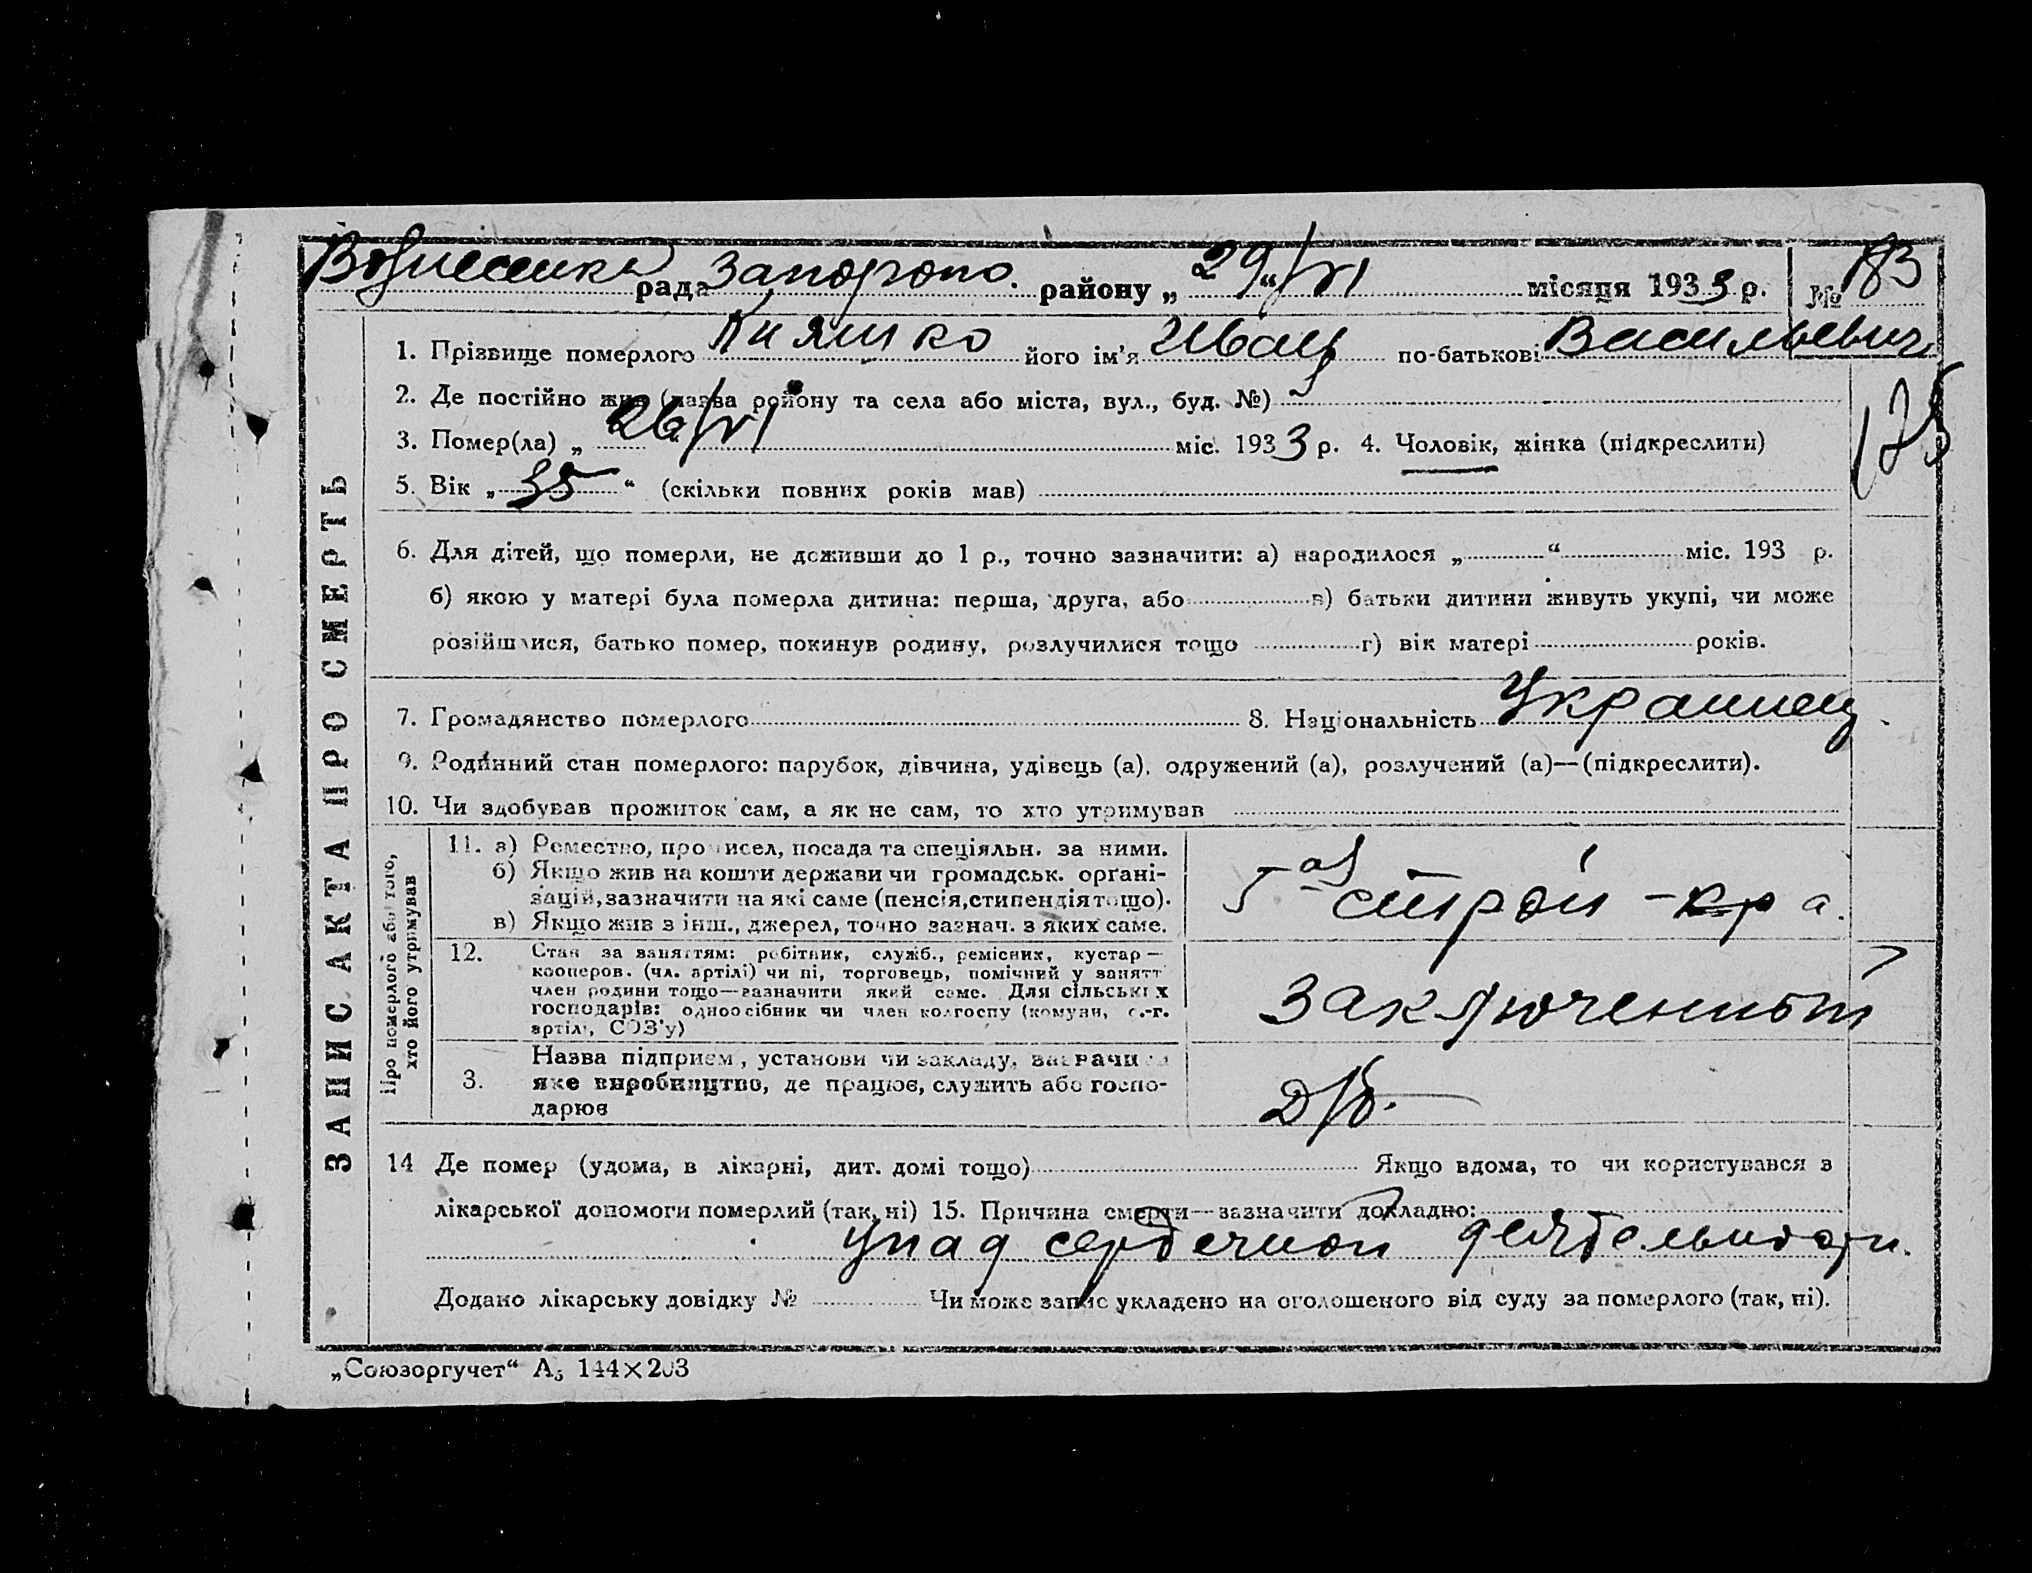 Вознесенка рада Запорожо. району „ 29 “ /VI місяця 1933 р. № 183
1. Прізвище померлого Кияшко його ім’я Иван по-батькові Васильевич
175
2. Де постійно жив (назва району та села або міста, вул., буд. №)
3. Помер(ла) „ 26/VI міс. 1933 р. 4. Чоловік, жінка (підкреслити)
5. Вік „ 35 “ (скільки повних років мав)
6. Для дітей, що померли, не доживши до 1 р., точно зазначити: а) народилося „ “ міс. 193 р.
б) якою у матері була померла дитина: перша, друга, або в) батьки дитини живуть укупі, чи може
розійшлися, батько помер, покинув родину, розлучилися тощо г) вік матері років.
7. Громадянство померлого 8. Національність Украинец
9. Родинний стан померлого: парубок, дівчина, удівець (а), одружений (а), розлучений (а)—(підкреслити).
10. Чи здобував прожиток сам, а як не сам, то хто утримував
Про померлого або того,
хто його утримував
11. а) Ремество, промисел, посада та спеціяльн. за ними.
б) Якщо жив на кошти держави чи громадськ. орґані-
зацій, зазначити на які саме (пенсія, стипендія тощо).
в) Якщо жив з інш., джерел, точно зазнач. з яких саме.
5ая строй -кра.
12. Стан за заняттям: робітник, служб., ремісник, кустар —
кооперов. (чл. артілі) чи ні, торговець, помічний у занятт
член родини тощо—зазначити який саме. Для сільських
господарів: одноосібник чи член колгоспу (комуни, с.-г.
артілі, СОЗ’у)
Заключенный
3. Назва підприєм., установи чи закладу, зазначи
яке виробництво, де працює, служить або госпо-
дарює
14 Де помер (удома, в лікарні, дит. домі тощо) Якщо вдома, то чи користувався з
лікарської допомоги померлий (так, ні) 15. Причина смерти—зазначити докладно:
упад сердечной деятельности.
Додано лікарську довідку № Чи може запис укладено на оголошеного від суду за померлого (так, ні).
ЗАПИС АКТА ПРО СМЕРТЬ
„Союзоргучет“ А5 144×203